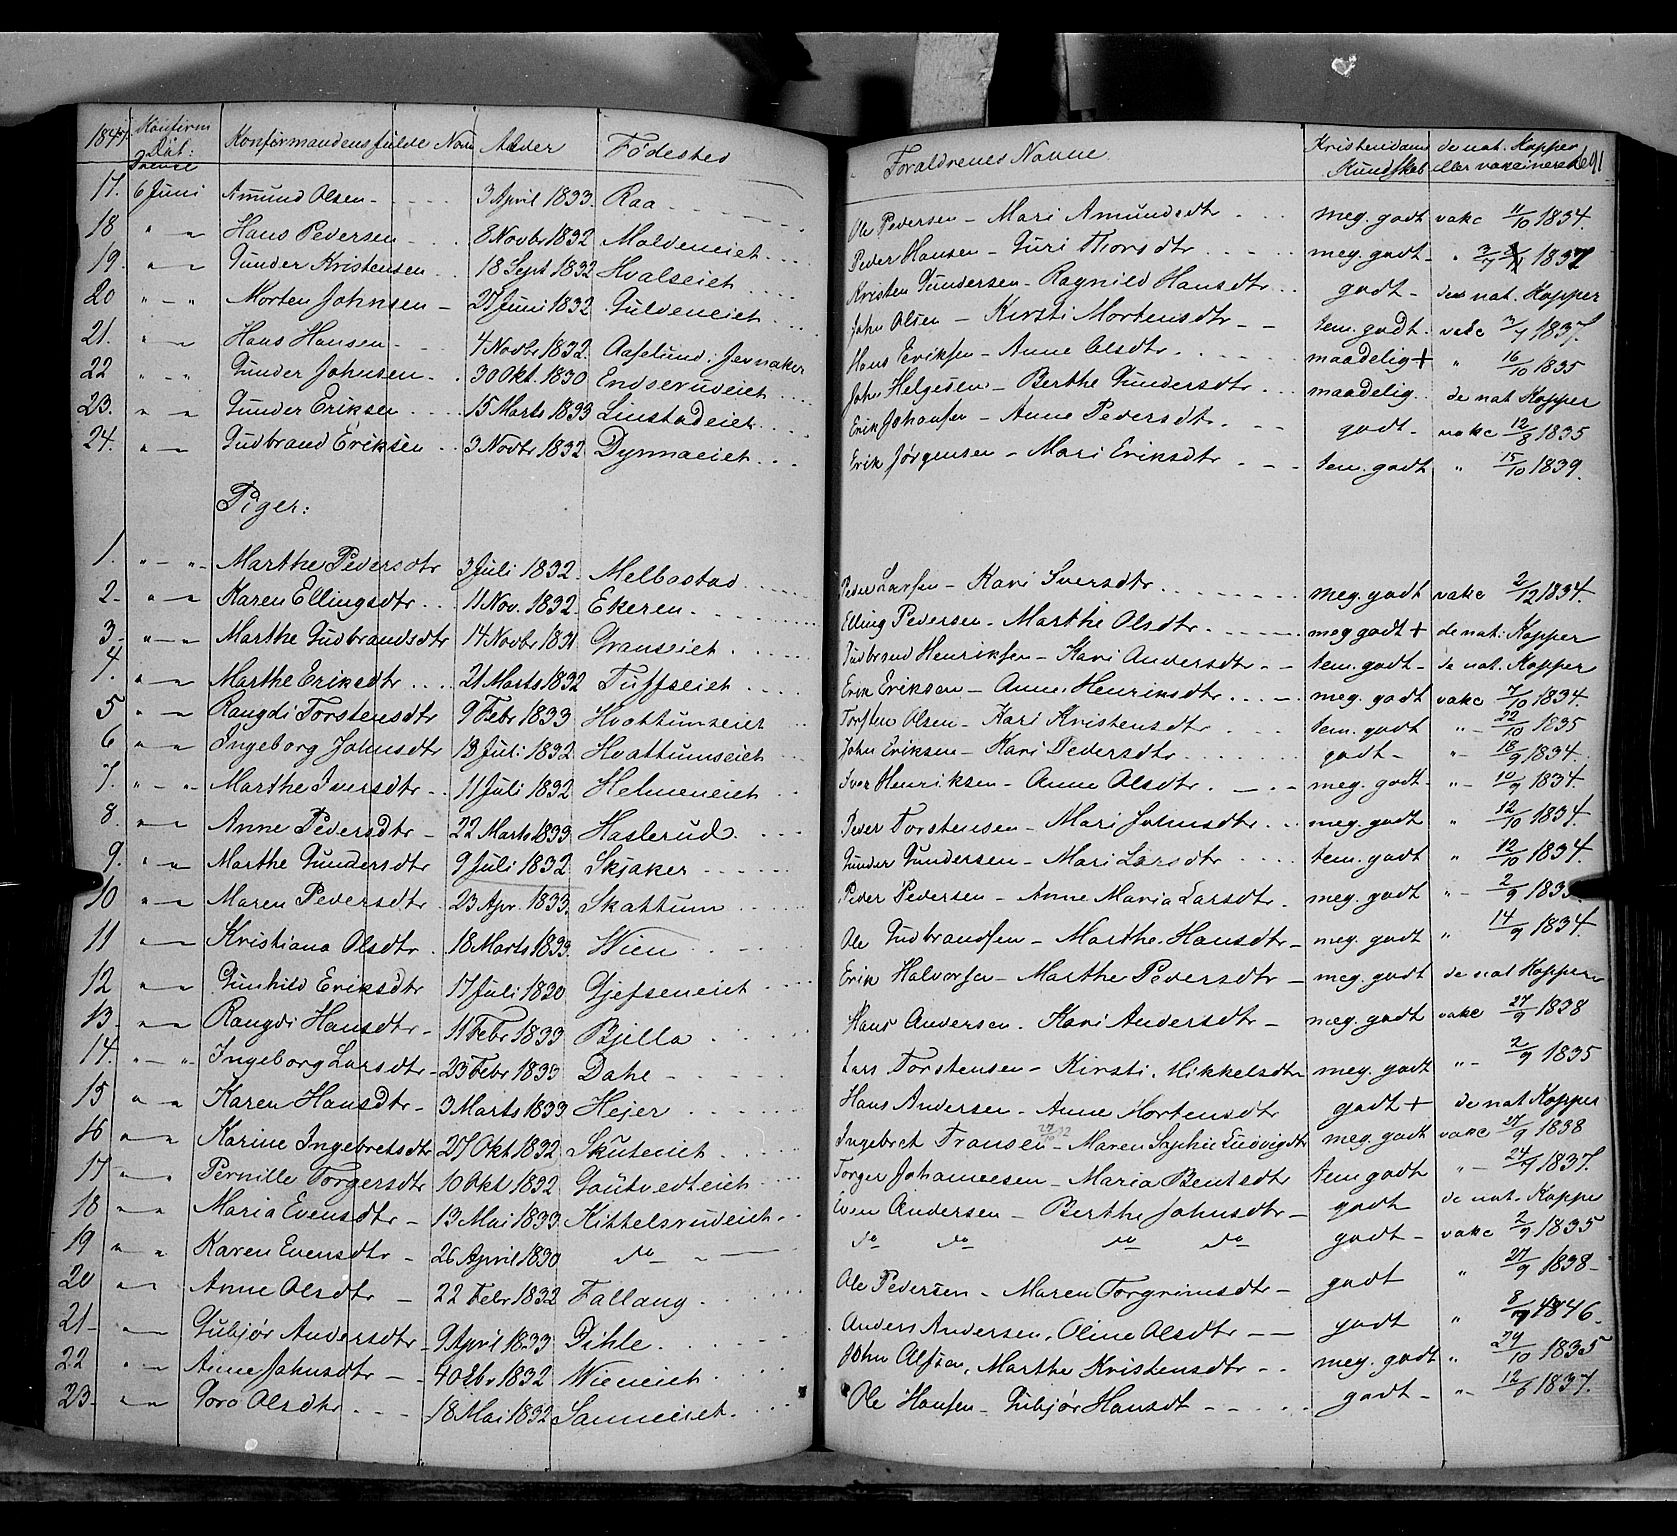 1847. Konfirm Dat: Konfirmandens fulde Navn Alder Fødested Forældrenes Navne Kristendoms Kundskab de nat. Kopper eller vakcinerede 91
17. 6 Juni Amund Olsen 3 April 1833 Raa Ole Pedersen - Mari Amundsdtr meg. godt vakc 11/10 1834.
18 " " Hans Pedersen 8 Novbr 1832 Moldeneiet Peder Hansen - Guri Thorsdtr meg. godt " 3/7 1837
19. " " Gunder Kristensen 18 Sept 1832 Hvalseiet Kristen Gundersen - Ragnild Hansdtr godt - de nat. Kopper
20 " " Morten Johnsen - 27 Juni 1832 Guldeneiet John Olsen - Kirsti Mortensdtr tem. godt vakc 3/7 1837.
21. " " Hans Hansen 4 Novbr 1832 Aaslund i Jevnaker Hans Eriksen - Anne Olsdtr maadelig + " 16/10 1835
22 " " Gunder Johnsen 30 Okt. 1830 Endserudeiet John Helgesen - Berthe Gundersdtr maadelig de nat Kopper
23. " " Gunder Eriksen 15 Marts 1833 Linstadeiet Erik Johansen - Anne Pedersdtr godt - vakc 12/8 1835
24. " " Gudbrand Eriksen 3 Novbr 1832 Dynnaeiet Erik Jørgensen - Mari Eriksdtr tem. godt " 15/10 1839.
Piger:
1. " " Marthe Pedersdtr 3 Juli 1832 Melbostad Peder Larsen - Kari Iversdtr meg. godt vakc 2/12 1834.
2. " " Karen Ellingsdtr 11 Nov. 1832 Ekeren Elling Pedersen - Marthe Olsdtr meg godt + de nat: Kopper
3. " " Marthe Gudbrandsdtr 14 Novbr 1831 Granseiet Gudbrand Henriksen - Kari Andersdtr tem. godt - de nat. Kopper
4. " " Marthe Eriksdtr 21 Marts 1832 Tuffseiet Erik Eriksen - Anne Henriksdtr meg. godt vakc 7/10 1834.
5 " " Rangdi Torstensdtr 9 Febr 1833 Hvattumseiet Torsten Olsen - Kari Kristensdtr tem. godt " 22/10 1835
6 " " Ingeborg Johnsdtr 13 Juli 1832 Hvattumseiet John Eriksen - Kari Pedersdtr godt - " 18/9 1834.
7. " " Marthe Iversdtr 11 Juli 1832 Helmeneiet Iver Henriksen - Anne Olsdtr meg. godt " 10/9 1834.
8. " " Anne Pedersdtr - 22 Marts 1833 Haslerud Peder Torstensen - Mari Johnsdtr meg. godt " 12/10 1834.
9. " " Marthe Gundersdtr 9 Juli 1832 Skjaker Gunder Gundersen - Mari Larsdtr tem. godt " 12/10 1834.
10 " " Maren Pedersdtr 23 Apr. 1833. Skattum Peder Pedersen - Anne Maria Larsdtr meg. godt " 2/9 1835
11 " " Kristiana Olsdtr 18 Marts 1833 Wien Ole Gudbrandsen - Marthe Hansdtr meg. godt " 14/9 1834.
12 " " Gunhild Eriksdtr 17 Juli 1830 Gjefseneiet Erik Halvorsen - Marthe Pedersdtr - meg. godt de nat Kopper
13. " " Rangdi Hansdtr - 11 Febr 1833 Bjella Hans Andersen. Kari Andersdtr - meg. godt vakc 27/9 1838
14. " " Ingeborg Larsdtr 23 Febr 1833 Dahe Lars Torstensen - Kirsti Mikkelsdtr meg. godt " 2/9 1835
15 " " Karen Hansdtr - 3 Marts 1833 Hejer Hans Andersen - Anne Mortensdtr godt + de nat Kopper
16 " " Karine Ingebretsdtr 27 Okt 1832 Skuteneiet Ingebret Fransen - Maren Sophie Ludvigsdtr meg. godt vakc 27/9 1838
17 " " Pernille Torgersdtr 10 Okt 1832 Gautvedteiet Torger Johannesen - Maria Bentsdtr tem godt " 24/7 1837.
18 " " Maria Evensdtr - 13 Mai 1833 Kittelsrudeiet Even Andersen - Berthe Johnsdtr - godt de nat. Kopper
19 " " Karen Evensdtr - 26 April 1830 do do do do do godt - vakc 2/9 1835
20 " " Anne Olsdtr - 22 Febr 1832 Fallang Ole Pedersen - Maren Torgrimsdtr - godt " 27/9 1838
21 " " Gubjør Andersdtr 9 April 1833 Dihle Anders Andersen, Oline Olsdtr godt " 8/7 1846.
22 " " Anne Johnsdtr - 4 Oktbr 1832 Wieneiet John Olsen, Marthe Kristensdtr meg. godt " 29/10 1835
23 " " Goro Olsdtr 18 Mai 1832 Sanneeiet Ole Hansen - Gubjør Hansdt godt - " 12/6 1837.